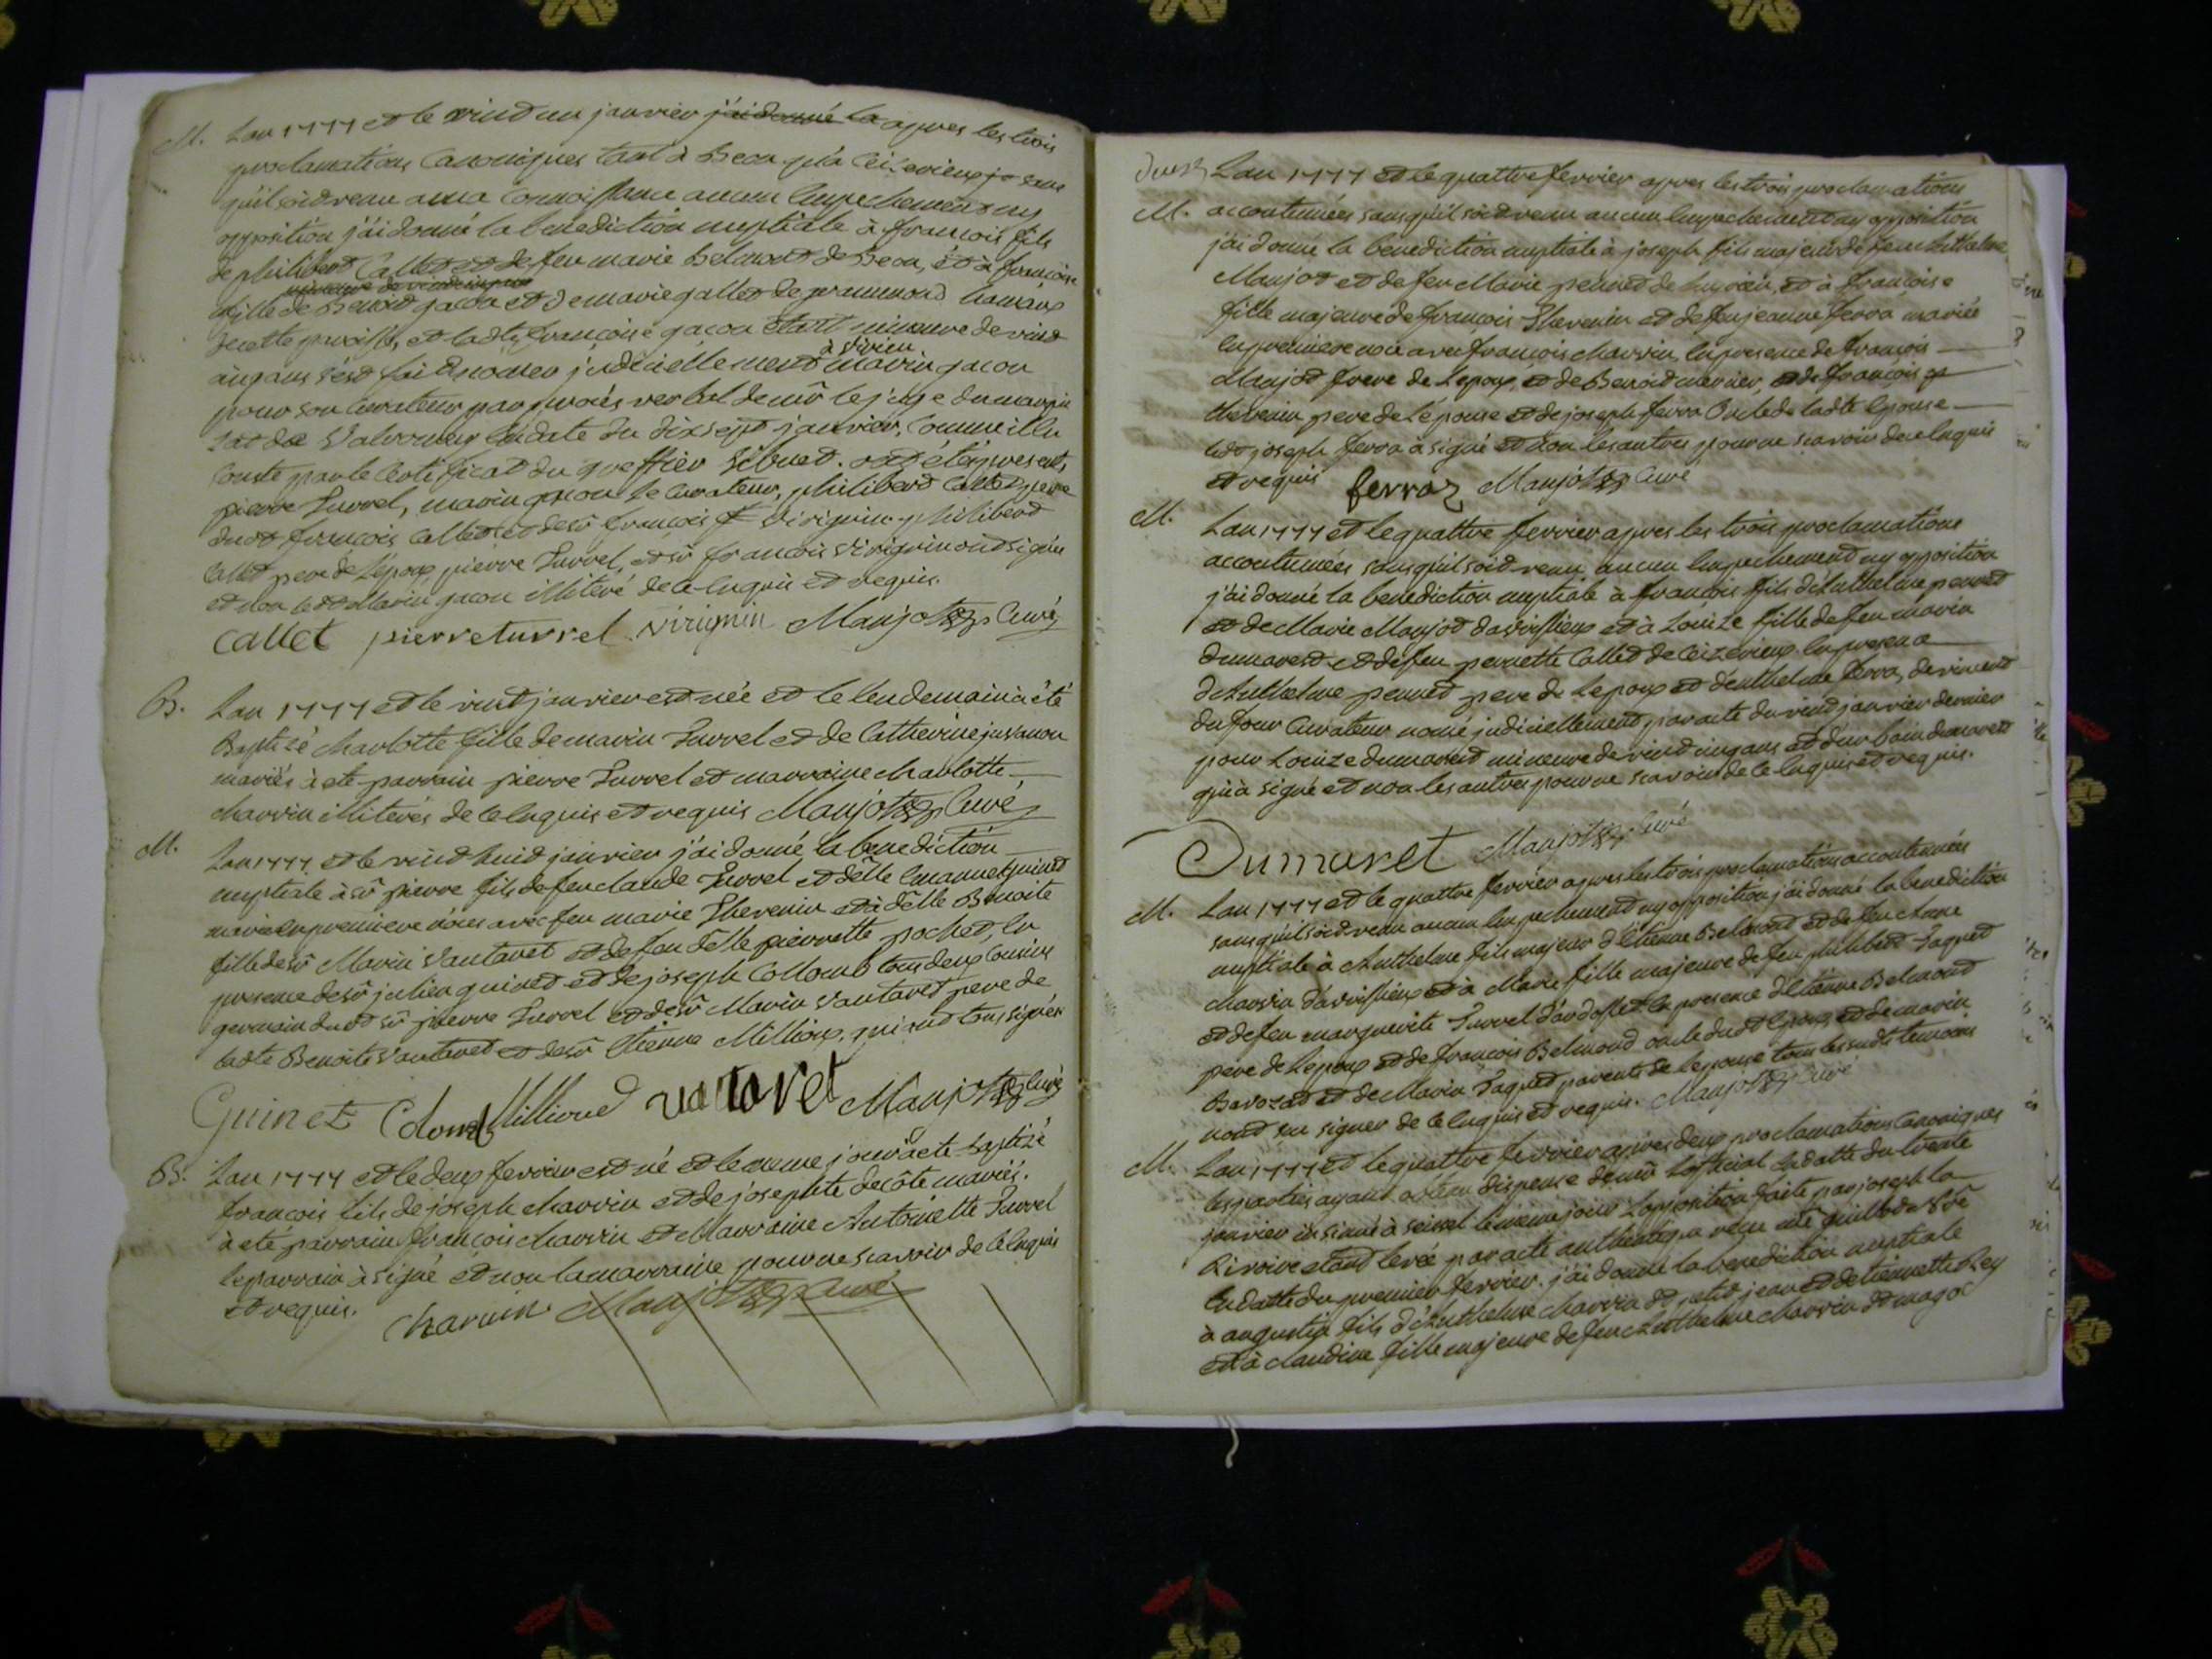 M. Lan 1777 et le vint un janvier j'ai donné la apres les trois
proclamations Canoniques tant à Beon qu'a Ceizerieux
qu'il soit venu a ma Connoissance aucun Empechement ny
opposition j'ai donné la benediction nuptiale à francois fils
de philibert Callet et de feu marie Belmont de Beon, et à francoise
fille de Benoit gacon et de marie gallet de hameau
de cette paroisse, et ladte francoise gacon étant mineure de vint
cinq ans s'est fait nomer judiciellement marin gacon
à virieu
pour son Curateur par procés verbal de mr le juge du
de Valromey En date du dix sept janvier, Comme il
Conste par le Certificat du greffier Sibuet. ont été presents
pierre Turrel, marin gacon le Curateur, philibert Callet pere
dudt francois Callet et de sr francois Virignin. philibert
Callet pere de L'epoux, pierre Turrel, et sr francois Virignin ont signés
et non ledt Marin gacon illiteré de ce Enquis et requis.
Callet pierre turrel Virignin Manjot Curé
B. Lan 1777 et le vint janvier est née et le lendemain a été
Baptisé charlotte fille de marin Turrel et de Catherine juvanon
mariés à eté parrain pierre Turrel et marraine charlotte
charvin illiterés de ce Enquis et requis Manjot Curé
M. Lan 1777 et le vint huit janvier j'ai donné la benediction
nuptiale à sr pierre fils de feu claude Turrel et delle Emanne guinet
marié En premiere nôces avec feu marie Thevenin et à delle Benoite
fille de sr Marin Vautaret et de feu delle pierrette pochet, En
presence de sr julien guinet et de joseph Collomb tous deux Cousins
germain dudt sr pierre Turrel et de sr Marin Vautaret pere de
ladte Benoite Vautaret et de sr Etienne Millioux, qui ont tous signés
Guinet Colomb Millioud vautaret Manjot Curé
B. Lan 1777 et le deux fevrier est né et le meme jour à eté baptisé
francois fils de joseph charvin et de josephte decôte mariés.
à eté parrain francois charvin et Marraine Antoinette Turrel
le parrain à signé et non la marraine pour ne scavoir de ce Enquis
et requis. charvin Manjot Curé
Lan 1777 et le quattre fevrier apres les trois proclamations
M. accoutumées sans qu'il soit venu aucun Empechement ny opposition
j'ai donné la benediction nuptiale à joseph fils majeur de feu Anthelme
Manjot et de feu Marie pennet de et à francoise
fille majeure de francois Thevenin et de feu jeanne ferra mariée
En premiere noce avec francois charvin, En presence de francois
Manjot frere de L'epoux, et de Benoit mernier, et de francois
thevenin pere de L'epouse et de joseph ferra Oncle de ladte Epouse
ledt joseph ferra à signé et non les autres pour ne scavoir de ce Enquis
et requis ferraz Manjot Curé
M. Lan 1777 et le quattre fevrier apres les trois proclamations
accoutumées sans qu'il soit venu aucun Empechement ny opposition
j'ai donné la benediction nuptiale à francois fils d'Anthelme pennet
et de Marie Manjot d'avrissieux et à Loüize fille de feu marin
dumarest et de feu pernette Callet de Ceizerieux En presence
d'Anthelme pennet pere de L'epoux et d'enthelme ferra, de vincent
dufour Curateur nomé judiciellement par acte du vint janvier dernier
pour Loüize dumarest mineure de vint cinq ans et d'urbain dumarest
qui à signé et non les autres pour ne scavoir de ce Enquis et requis.
Dumaret Manjot Curé
M. Lan 1777 et le quattre fevrier apres les trois proclamations accoutumées
sans qu'il soit venu aucun Empechement ny opposition j'ai donné la benediction
nuptiale à Anthelme fils majeur d'Etienne Belmont et de feu Anne
charvin d'avrissieux et à Marie fille majeure de feu philibert Taquet
et de feu marguerite Turrel d'ardosset En presence d'Etienne Belmont
pere de L'epoux et de francois Belmont oncle dudt Epoux, et de marin
Bavozat et de Marin Taquet parents de L'epouse tous les sudts temoins
n'ont scu signer de ce Enquis et requis. Manjot Curé
M. Lan 1777 et le quattre fevrier apres deux proclamations Canoniques
les parties ayant obtenu dispense de mr L'official En datte du trente
janvier insinué à seissel le meme jour L'opposition faite par joseph la
Riviere etant levée par acte authentique recu me guillot Nre
En datte du premier fevrier. j'ai donné la benediction nuptiale
à augustin fils d'Anthelme charvin dt petit jean et de tiennette Rey
et à claudine fille majeure de feu Anthelme charvin dt magot